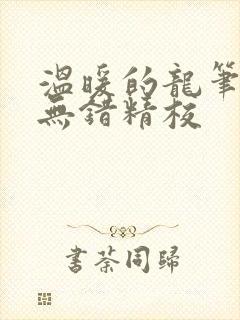 溫暖的龍筆
無錯精校
書荼同歸